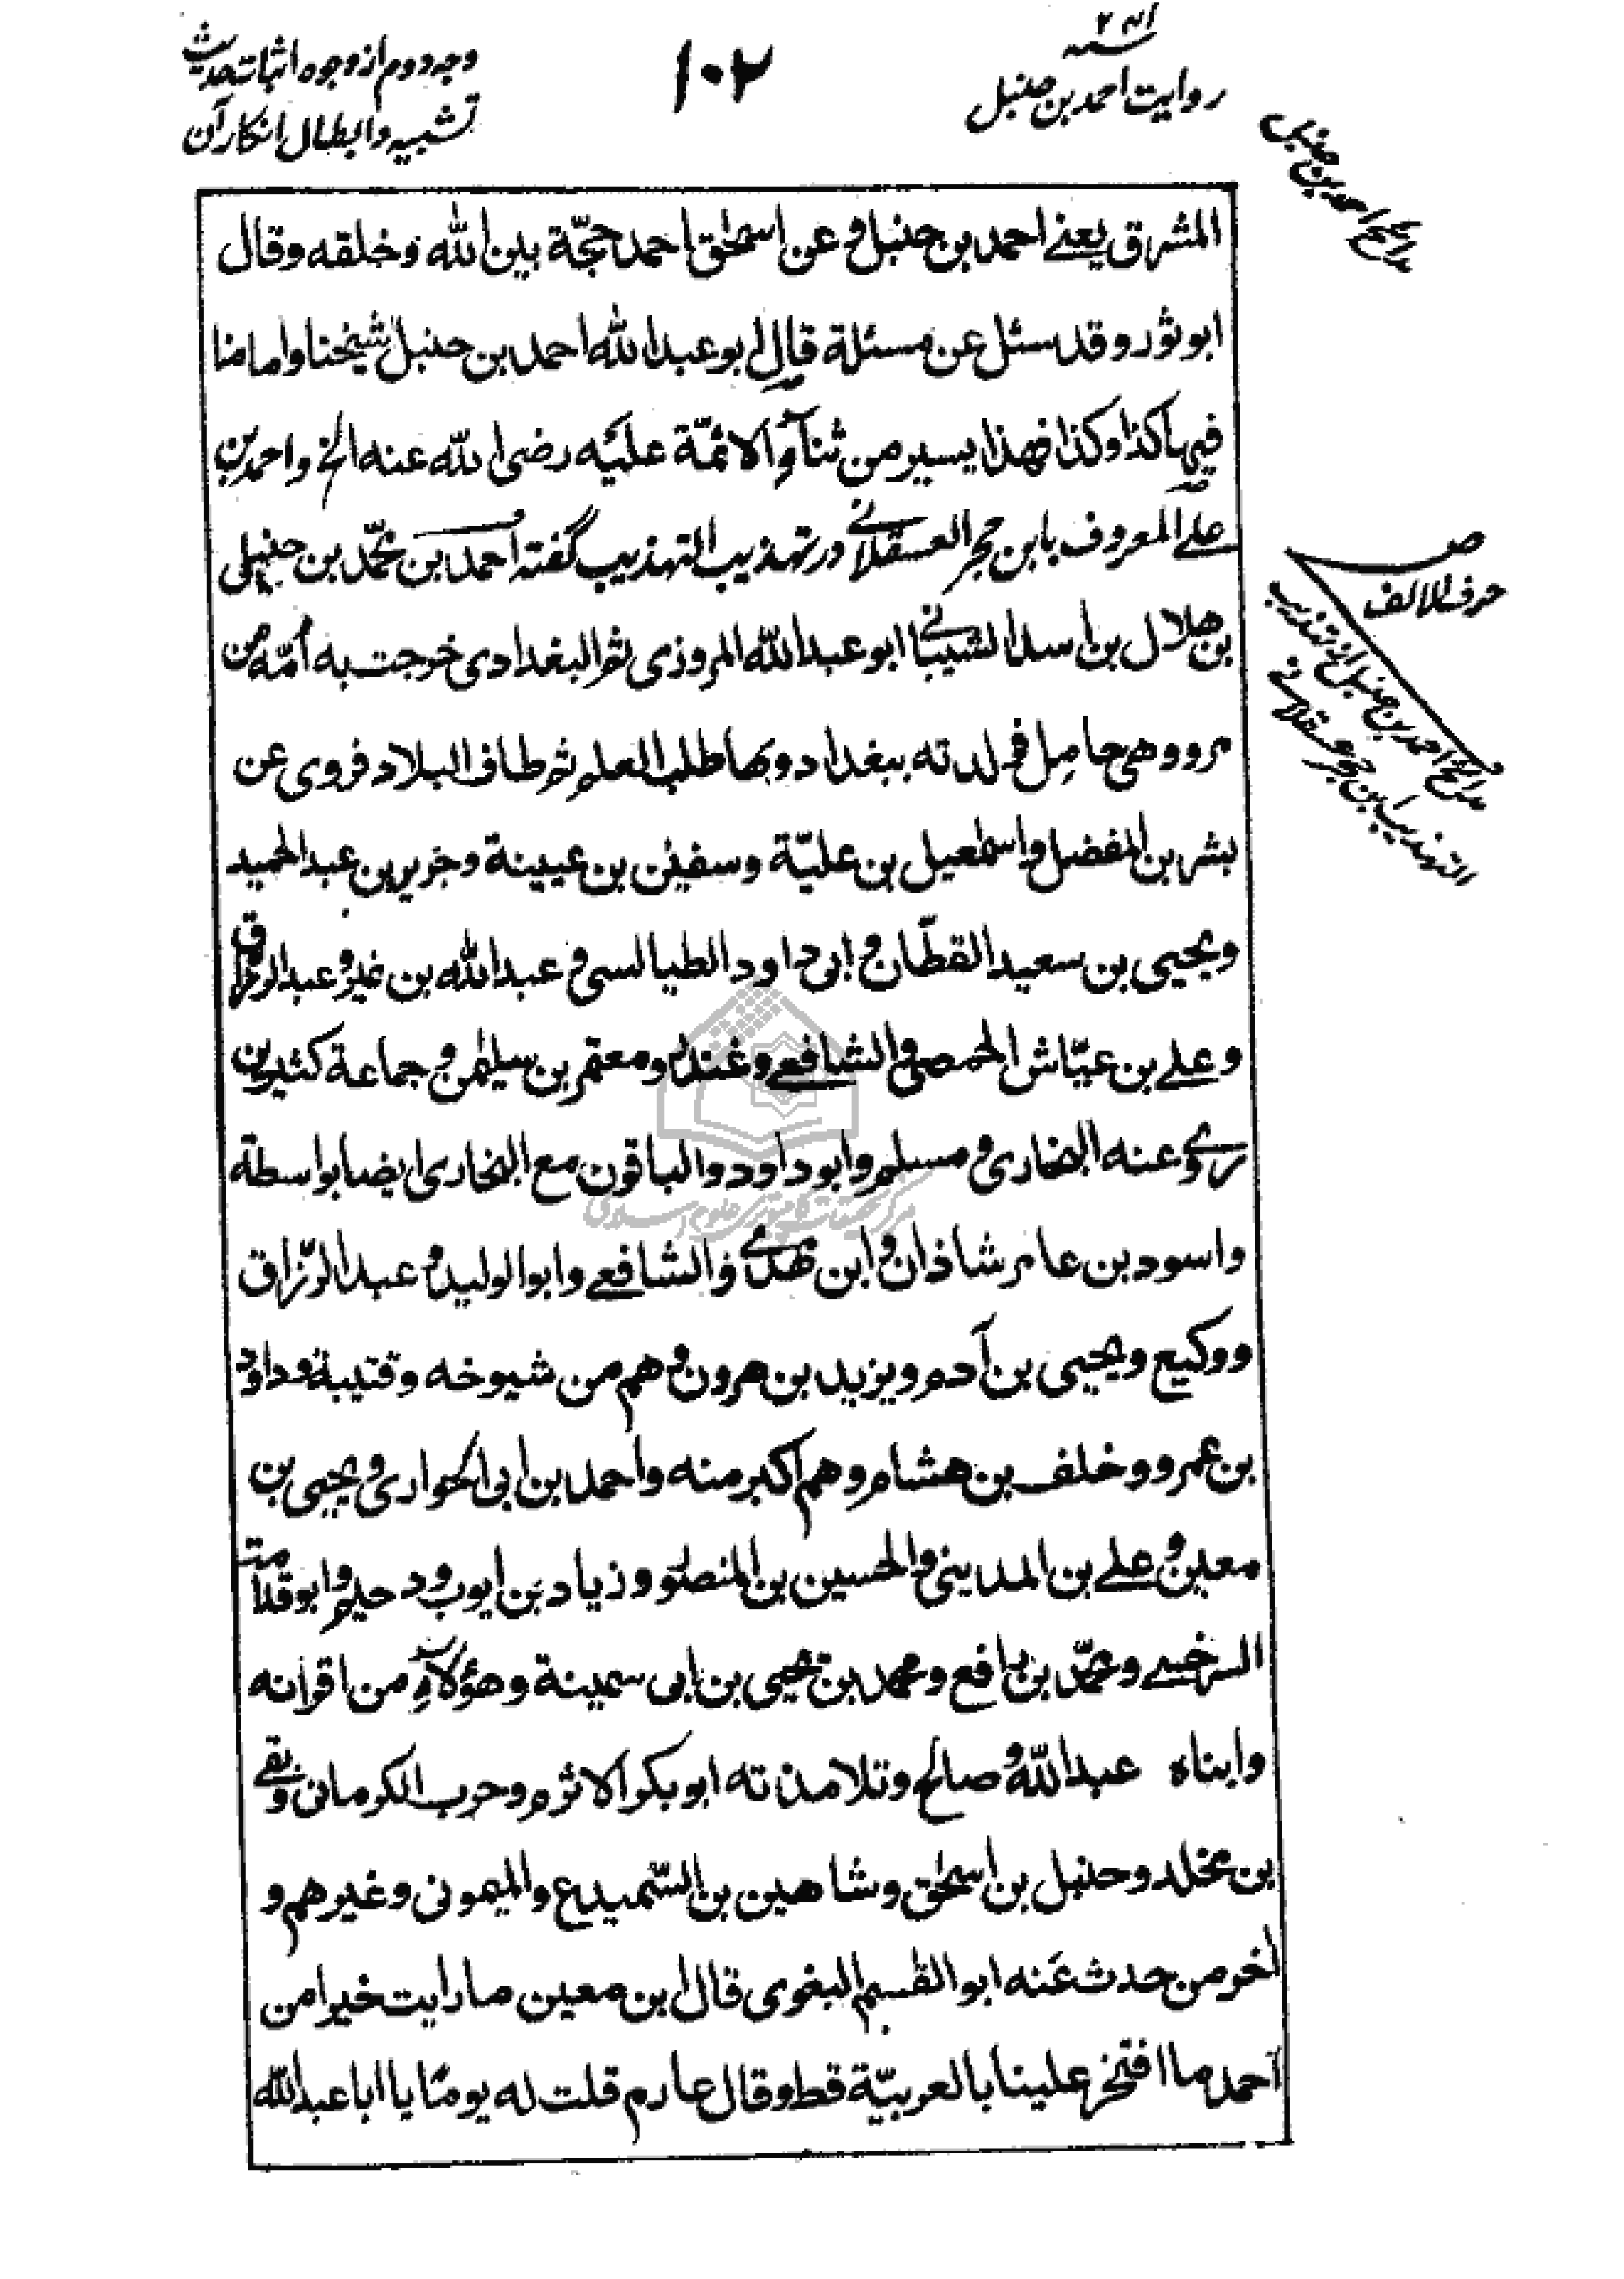 روایت احمد بن حنبل
۱۰۲
وجه دوم از وجوه اثبات حدیث
تشبیه و ابطال انکار آن
مدایح احمد بن حنبل
المشرق یعنے احمد بن حنبل و عن اسحٰق احمد حجّة بین الله و خلقه و قال
ابو ثور و قد سئل عن مسئلة قال ابو عبد الله احمد بن حنبل شیخنا و امامنا
فیها کذا و کذا فهذا یسیر من ثناۤءِ الائمّة علیَه رضی الله عنه الخ و احمد بن
علے المعروف بابن حجر العسقلانے در تهذیب التهذیب گفته احمد بن محمّد بن حنبل
بن هلال بن اسد الشیبانے ابو عبد الله المروزی ثم البغدادی خرجت به اُمّه من
مرو و هی حامِل فولدته ببغداد و بها طلب العلم ثم طاف البلاد فروی عن
بشر بن المفضل و اسمٰعیل بن علیّة و سفیٰن بن عیینة و جریر بن عبد الحمید
و یحیی بن سعید القطّان و ابی داود الطیالسی و عبد الله بن نمیر و عبد الرزاق
و علے بن عیّاش الحمصی و الشافعے و غندر و معتمر بن سلیمٰن و جماعة کثیرین
روی عنه البخاری و مسلم و ابو داود و الباقون مع البخاری ایضا بواسطة
و اسود بن عامر شاذان و ابن مهدی و الشافعے و ابو الولید و عبد الرّزاق
و وکیع و یحیی بن آدم و یزید بن هرون و هم من شیوخه و قتیبة و داود
بن عمرو و خلف بن هشام و هم اکبر منه و احمد بن ابی الحواری و یحیی بن
معین و علے بن المدینی و الحسین بن المنصور و زیاد بن ایوب و دحیم و ابو قدامة
السرخسے و محمّد بن رافع و محمد بن یحیی بن ابی سمینة و هؤلاۤءِ من اقرانه
و ابناه عبد الله و صالح و تلامذته ابو بکر الاثرم و حرب الکرمانی و بقے
بن مخلد و حنبل بن اسحٰق و شاهین بن السّمیدع و المیمونی و غیرهم و
اٰخر من حدث عَنه ابو القٰسم البغوی قال ابن معین ما رایت خیرا من
احمد ما افتخر علینا بالعربیّة قط و قال عارم قلت له یومًا یا ابا عبد الله
حرف الالف
مدایح احمد بن حنبل از تهذیب
التهذیب ابن حجر عسقلانے